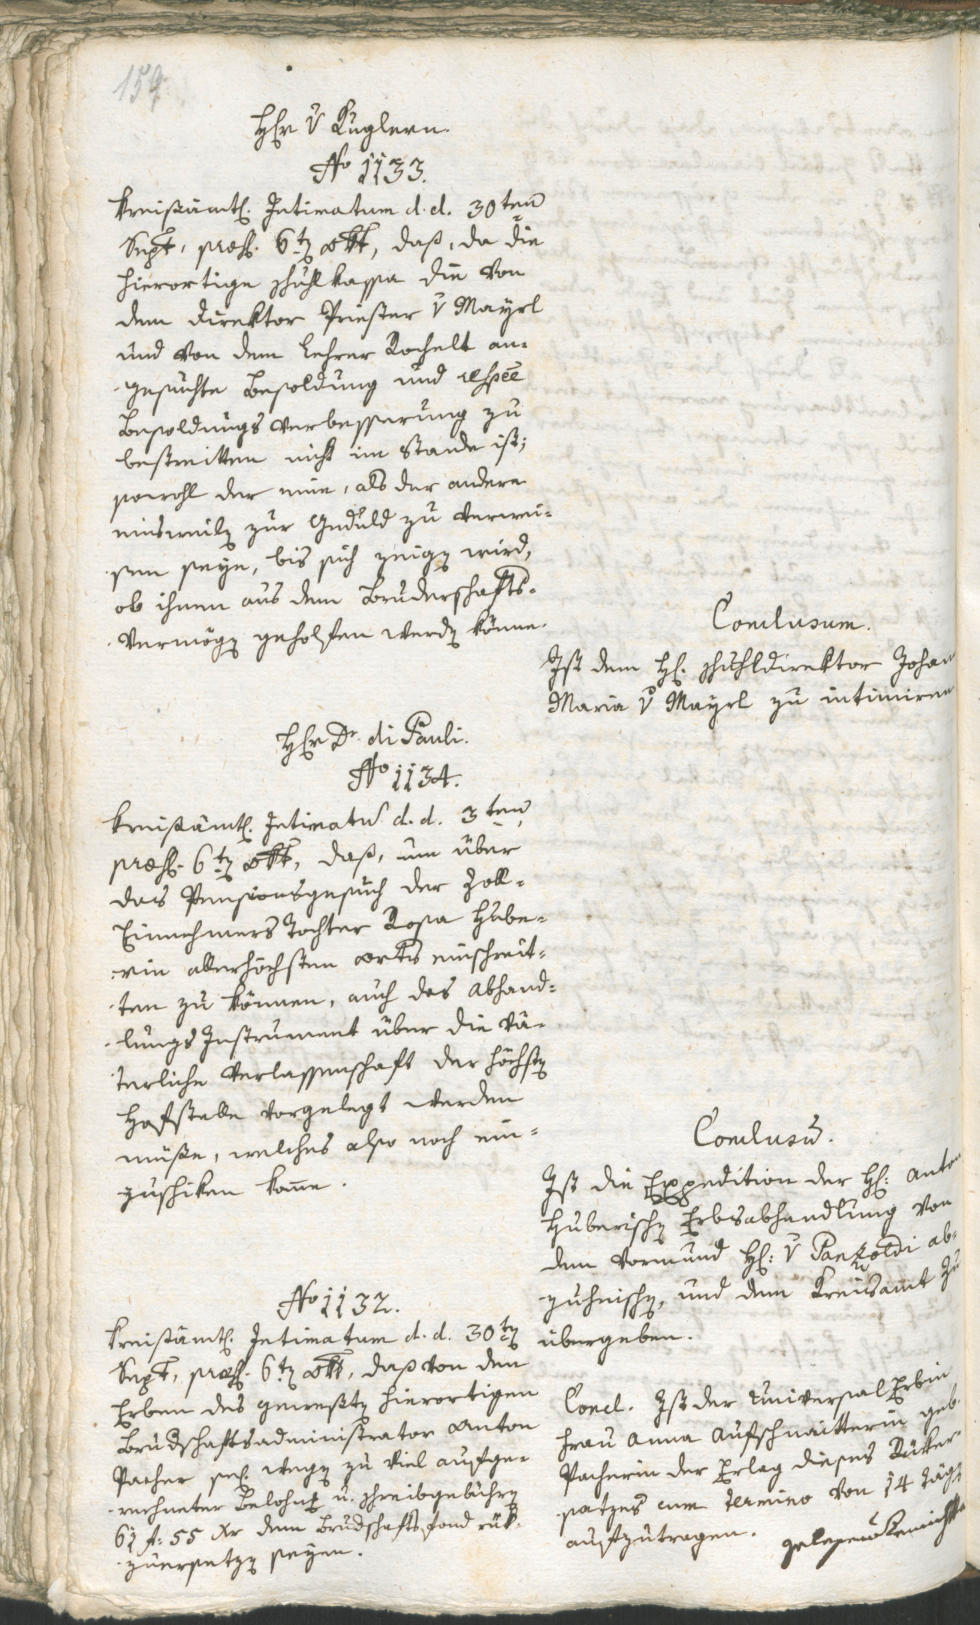 159.
H€r v Kuglern.
No 1133.
Kreißämtl. Intimatum d. d. 30ten
Sept, præs. 6tn Okt, daß, da die
hierortige Schuhlkassa die von
dem Direktor Priester v Mayrl
und von dem Lehrer Rochelt an-
gesuchte Besoldung und respee
Besoldungs Verbesserung zu
bestreitten nicht im Stande ist;
sowohl der eine, als der andere
einsweiln zur Geduld zu verwei-
sen seye, bis sich zeign wird,
ob ihnen aus dem Bruderschafts-
Vermögn geholfen werdn könne.
Conclusum.
Ist dem H. Schuhldirektor Johan
Maria v Mayrl zu intimiren
Hr Dr. di Pauli.
No 1134.
Kreißämtl. Intimatu d. d. 3ten
præs. 6tn Okt, daß, um über
das Pensionsgesuch der Zoll-
Einnehmers Tochter Rosa Hube-
rin allerhöchsten Orts einschreit-
ten zu können, auch das Abhand-
lungs Instrument über die vä-
terliche Verlassenschaft der höchstn
Hofstelle vorgelegt werden
müße, welches also noch ein-
zuschiken kome.
Conclusu.
Ist die Expedition der H: Anton
Huberischn Erbsabhandlung von
dem Vormund H: v Panzoldi ab-
zuheischn, und dem Kreisamt zu
übergeben.
No 1132.
Kreißämtl. Intimatum d. d. 30tn
Sept, præs. 6tn Okt, daß von den
Erben des gewestn hierortigen
Brudschaftsadministrator Anton
Pacher sel. wegn zu viel aufge-
rechneter Belohng u. Schreibgebührn
61 f. 55 Xr dem Brudschafts fond rük-
zuersetzn seyen.
Concl. Ist der Universal Erbin
Frau Anna Aufschnaitterin geb.
Pacherin der Erlag dieses Rüker-
satzes cum Termino von 14 Tägn
aufzutragen.
gelesen